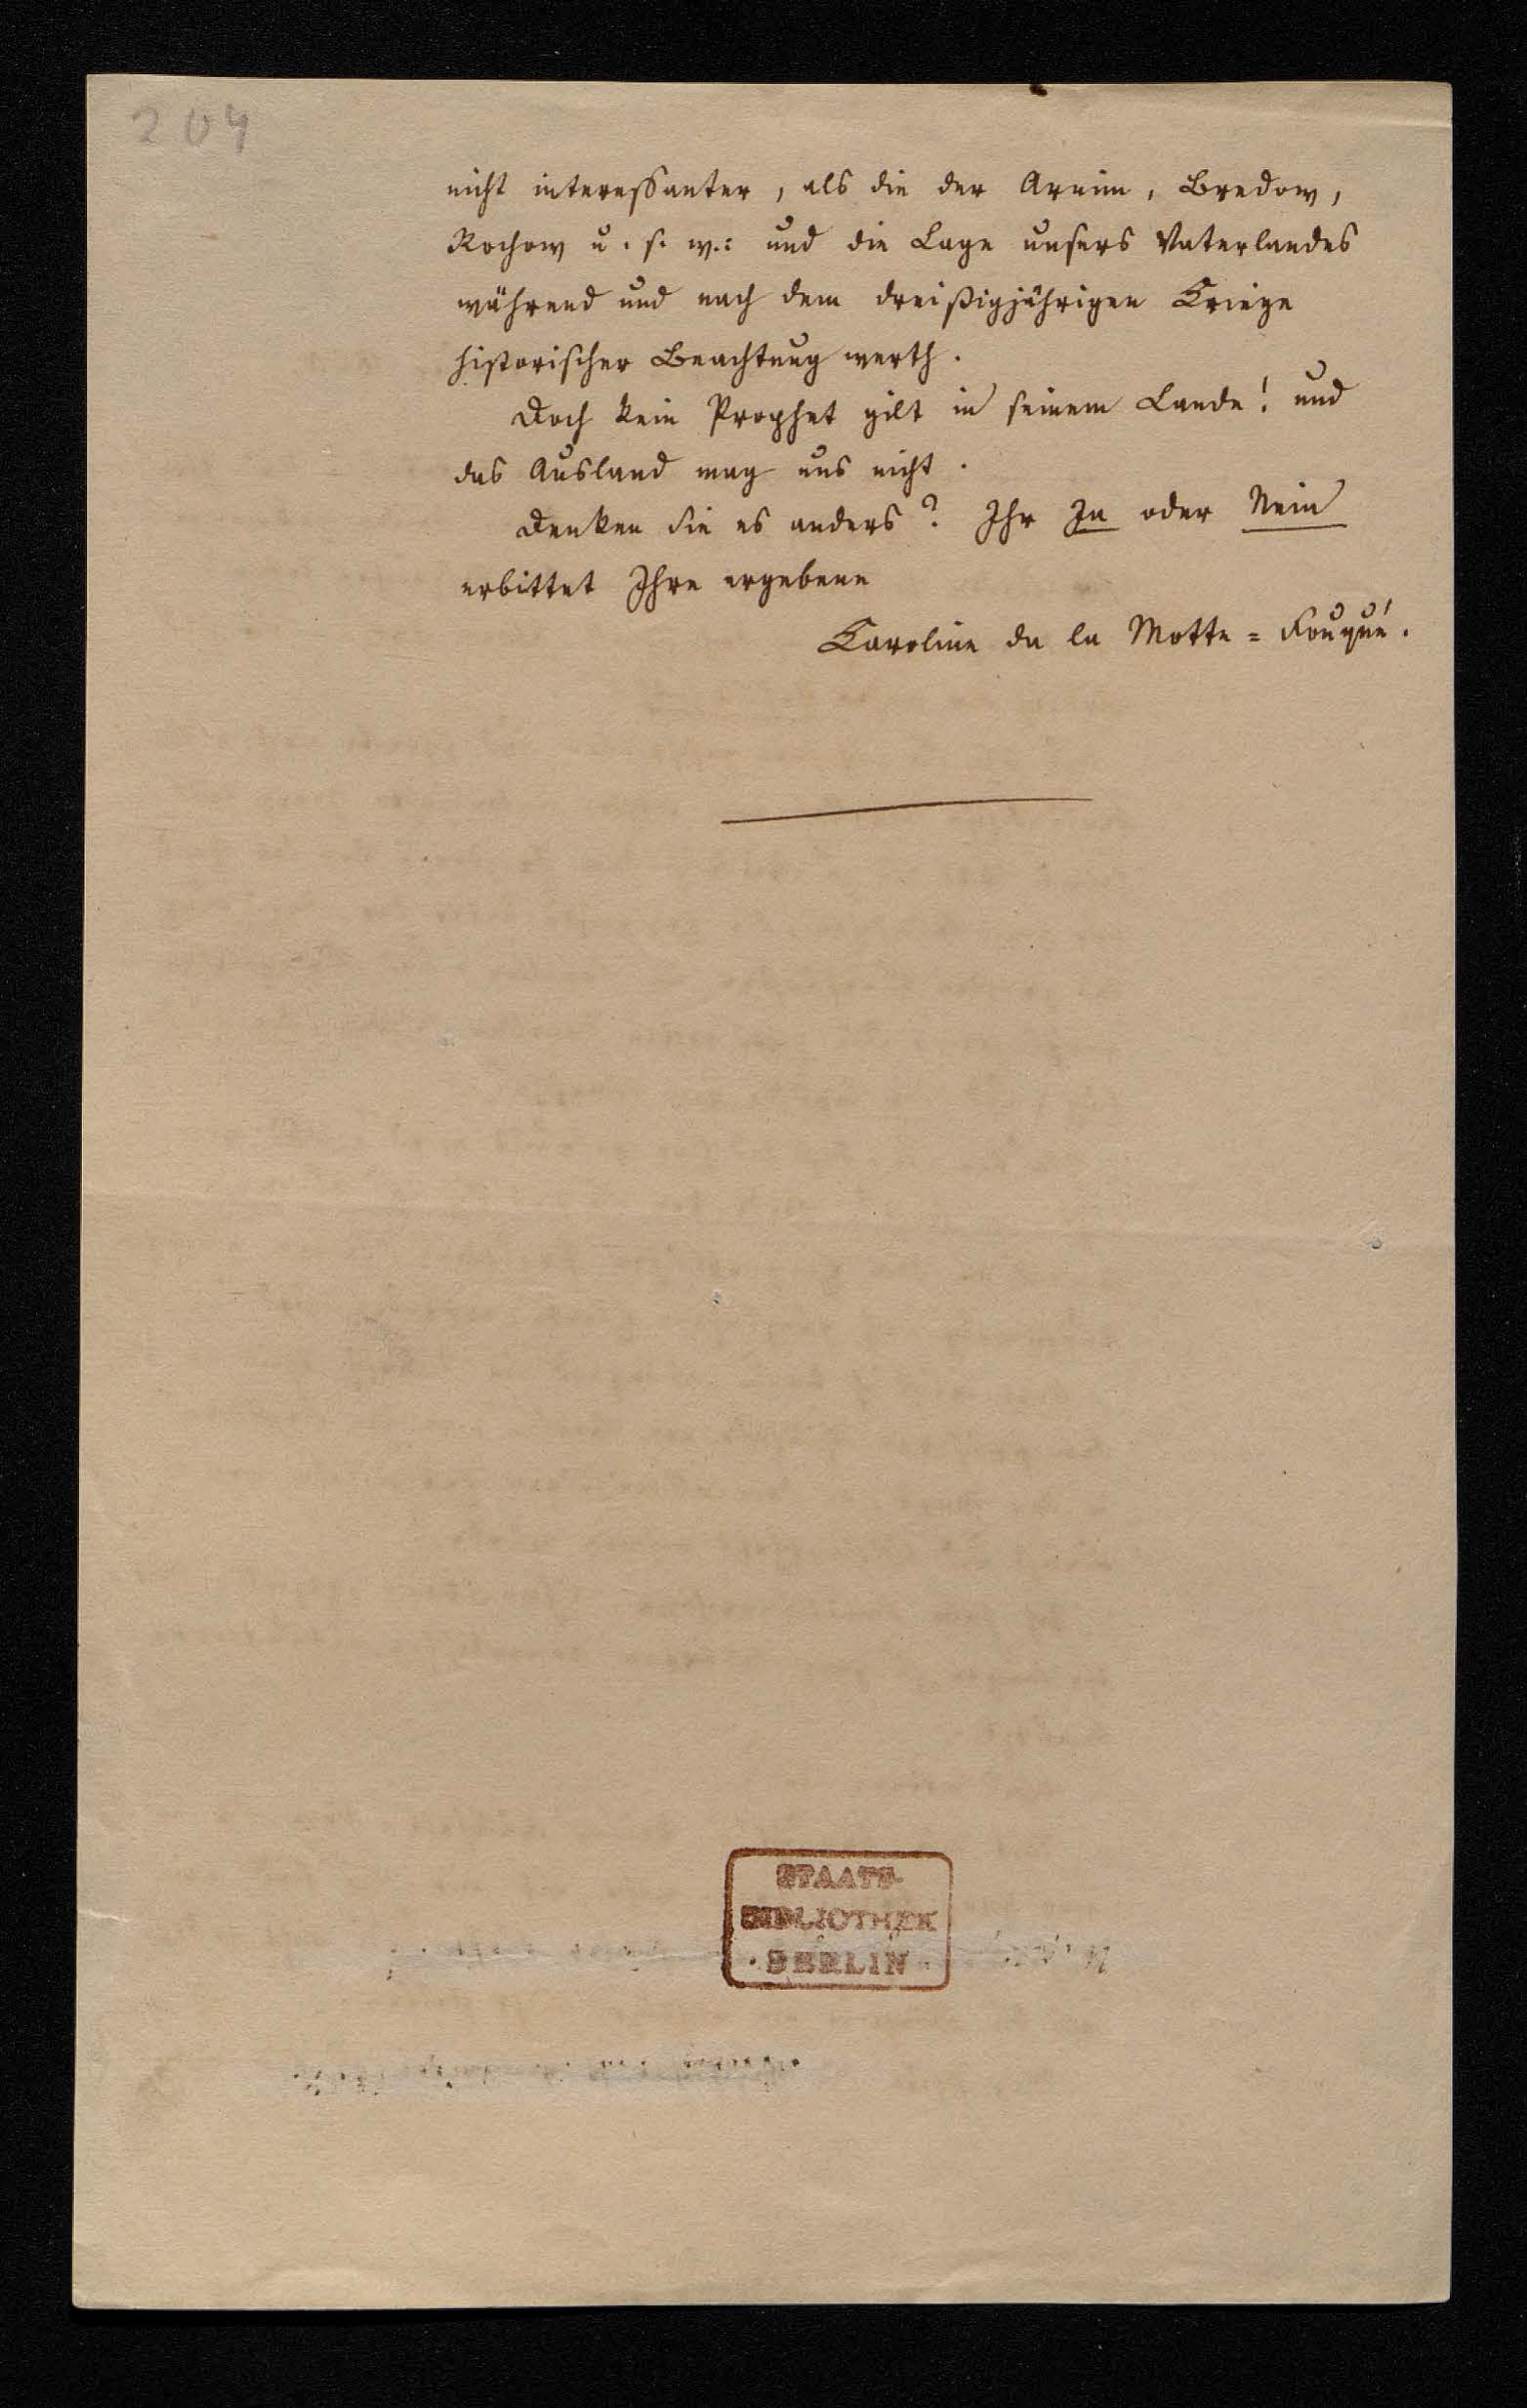 204
nicht interessanter, als die der Arnim, Bredow,
Rochow u. s. w.: und die Lage unsers Vaterlandes
während und nach dem dreißigjährigen Kriege
historischer Beachtung werth.
Doch kein Prophet gilt in seinem Lande! und
das Ausland mag uns nicht.
Denken Sie es anders? Ihr Ja oder Nein
erbittet Ihre ergebene
Caroline de la Motte=Fouqué.
STAATS-
BIBLIOTHEK
· BERLIN ·